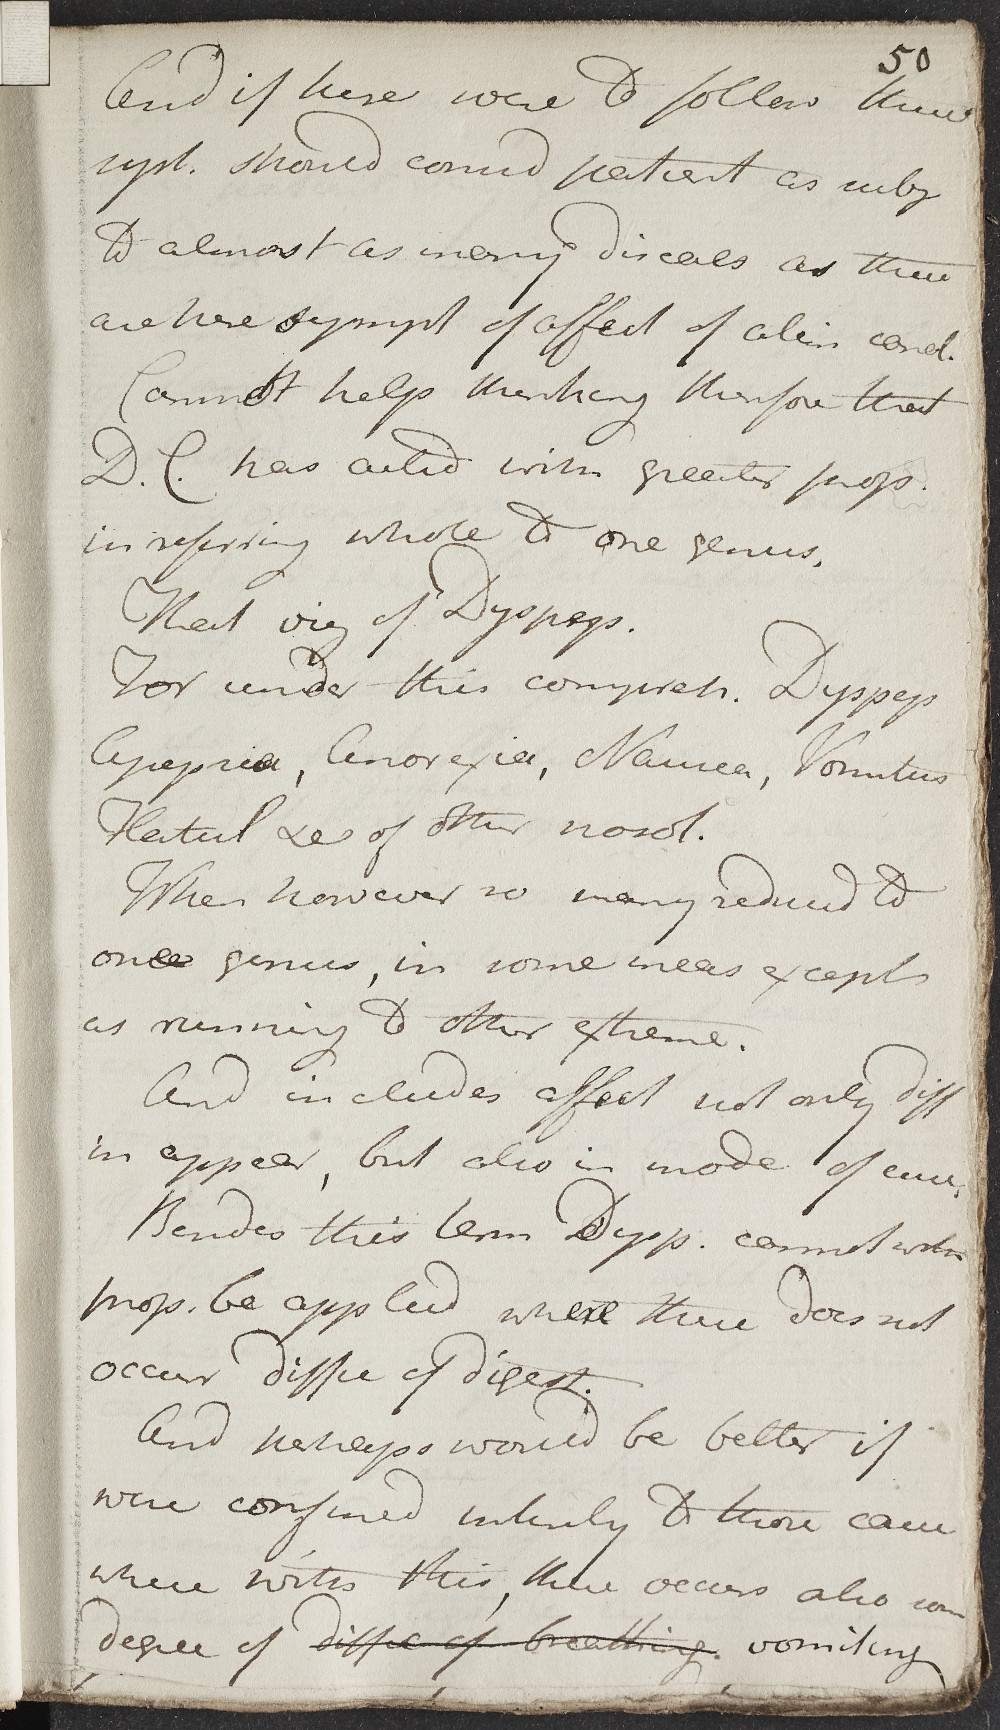 50
And if here were to follow these
syst. should consid patient as subj
to almost as many diseases as there
are here sympt of affect of alim canal.
Cannot help thinking therefore that
D. C. has acted with greater prop.
in referring whole to one genus.
That viz of Dyspeps.
For under this compreh. Dyspeps
Apepsia, Anorexia, Nausea, Vomitus
Flatul &c of other nosol.
When however so many reduced to
one genus, in some meas except
as running to other extreme.
And includes affect not only diff
in appear, but also in mode of cure.
Besides this term Dysp. cannot with
prop. be applied where there does not
occur diffic of digest.
And perhaps would be better if
were confined entirely to those cases
where with this, there occurs also some
degree of diffic of breathing. vomiting